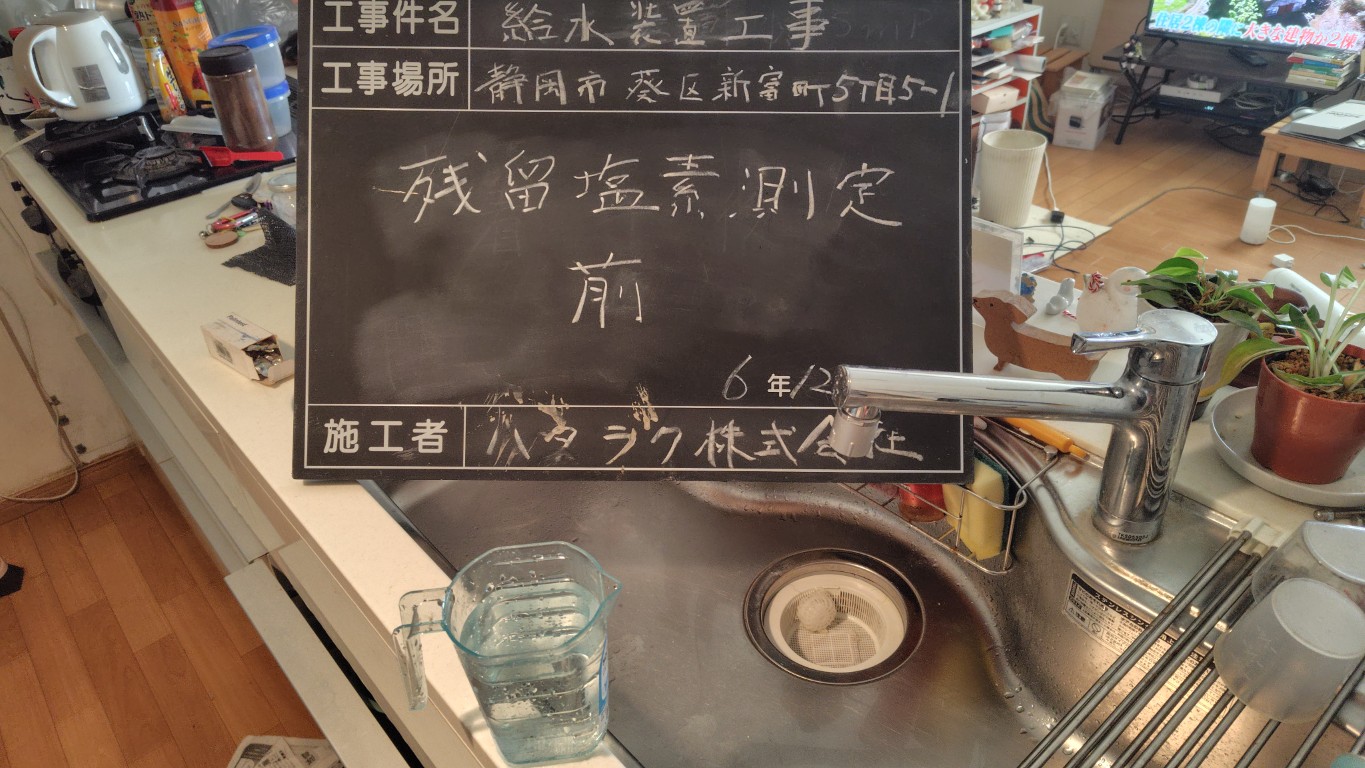 工事件名 給水装置工事
工事場所 静岡市葵区新富町5丁目5-1
残留塩素測定
前
6年12
施工者 ハタラク株式会社
住居2棟の隣に大きな建物が2棟